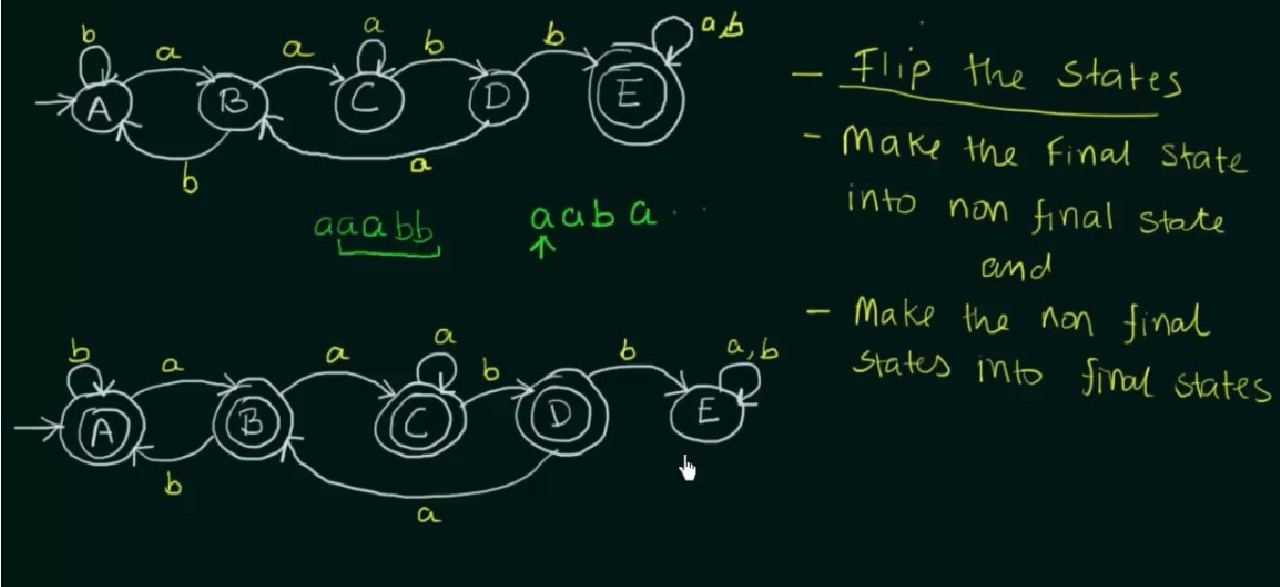 b a a a b b a,b
A B C D E
b a
aaabb aaba..
b a a a b b a,b
A B C D E
b
a
- Flip the States
- Make the Final State
into non final state
and
- Make the non final
states into final states